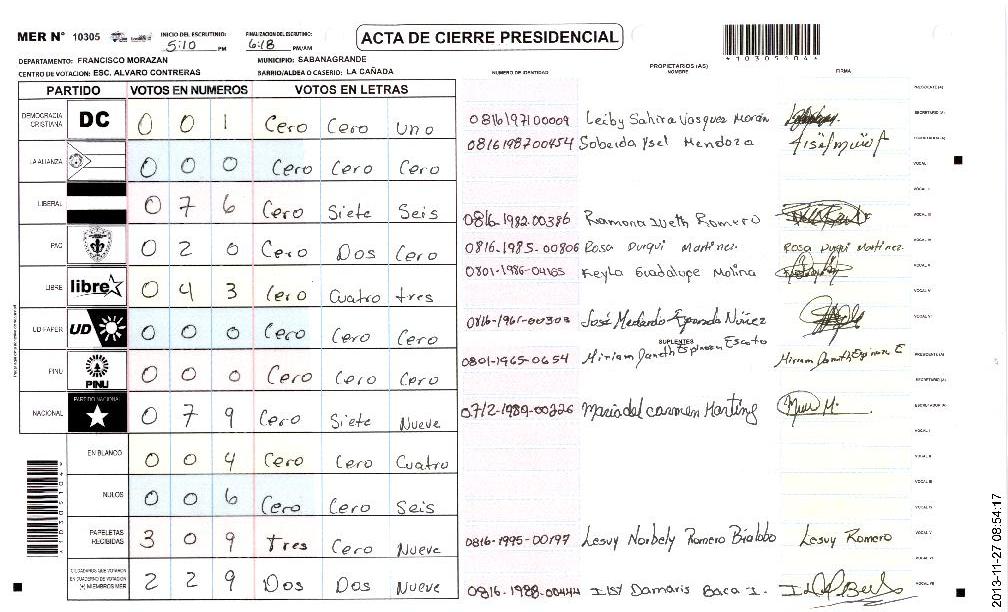 MER N° 10305 INICIO DEL ESCRUTINIO: 5:10 PM FINALIZACION DEL ESCRUTINIO: 6:18 PM/AM ACTA DE CIERRE PRESIDENCIAL
DEPARTAMENTO: FRANCISCO MORAZAN MUNICIPIO: SABANAGRANDE
CENTRO DE VOTACION: ESC. ALVARO CONTRERAS BARRIO/ALDEA O CASERIO: LA CAÑADA
NUMERO DE IDENTIDAD PROPIETARIOS (AS) NOMBRE FIRMA
PARTIDO VOTOS EN NUMEROS VOTOS EN LETRAS
DEMOCRACIA CRISTIANA DC 0 0 1 Cero Cero Uno
LA ALIANZA 0 0 0 Cero Cero Cero
LIBERAL 0 7 6 Cero Siete Seis
PAC 0 2 0 Cero Dos Cero
LIBRE libre 0 4 3 Cero Cuatro tres
UD FAPER UD 0 0 0 Cero Cero Cero
PINU PINU 0 0 0 Cero Cero Cero
NACIONAL PARTIDO NACIONAL 0 7 9 Cero Siete Nueve
EN BLANCO 0 0 4 Cero Cero Cuatro
NULOS 0 0 6 Cero Cero Seis
PAPELETAS RECIBIDAS 3 0 9 tres Cero Nueve
CIUDADANOS QUE VOTARON EN CUADERNO DE VOTACION MIEMBROS MER 2 2 9 Dos Dos Nueve
0816197100009 Leiby Sahira Vasquez Morán
0816198700454 Sobeida Ysel Mendoza
0816-1982-00386 Ramona Iveth Romero
0816-1985-00806 Rosa Duqui Martinez. Rosa Duqui Martinez.
0801-1986-04165 Keyla Guadalupe Molina
0816-1961-00303 José Medardo Núñez
SUPLENTES
0801-1965-0654 Miriam Janeth Espinoza Escoto
0712-1989-00226 Maria del Carmen
0816-1995-00197 Lesvy Norbely Romero Lesvy Romero
0816-1988-00444 Damaris Baca I.
2013-11-27 08:54:17